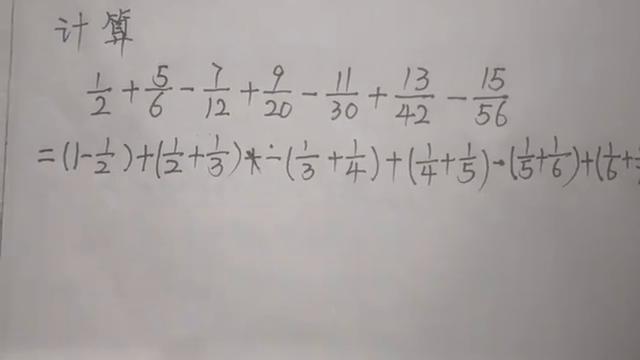 计算
1/2 + 5/6 - 7/12 + 9/20 - 11/30 + 13/42 - 15/56
= (1 - 1/2) + (1/2 + 1/3) - (1/3 + 1/4) + (1/4 + 1/5) - (1/5 + 1/6) + (1/6 +